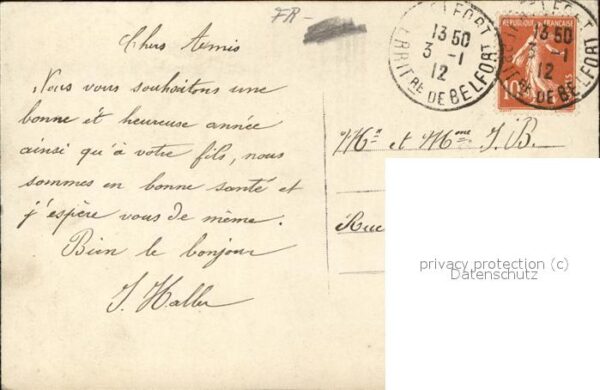 FR-
Chers Amis
Nous vous souhaitons une
bonne et heureuse année
ainsi qu'à votre fils, nous
sommes en bonne santé et
j'espère vous de même.
Bien le bonjour
J. Haller
BELFORT
13 50
3 -1
12
TERRIT RE DE BELFORT
REPUBLIQUE FRANÇAISE
10
POSTES
BELFORT
13 50
3 -1
12
RE DE BELFORT
Mr et Mme J. B.
Rue
privacy protection (c)
Datenschutz